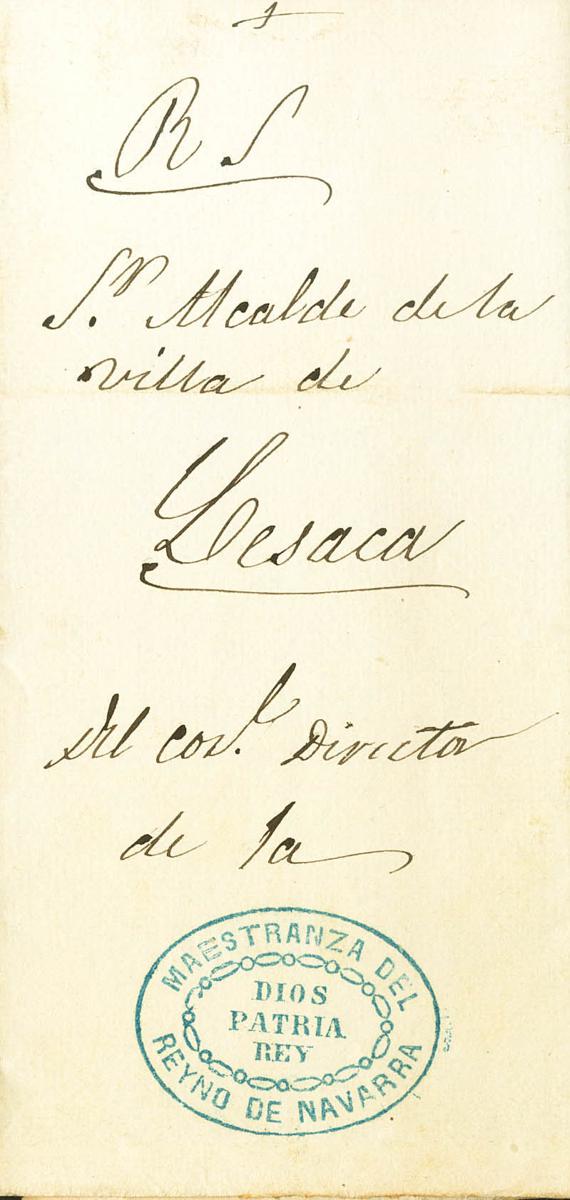 R S
S.ʳ Alcalde de la
villa de
Lesaca
Del cor.ˡ Director
de la
MAESTRANZA DEL
DIOS
PATRIA
REY
REYNO DE NAVARRA